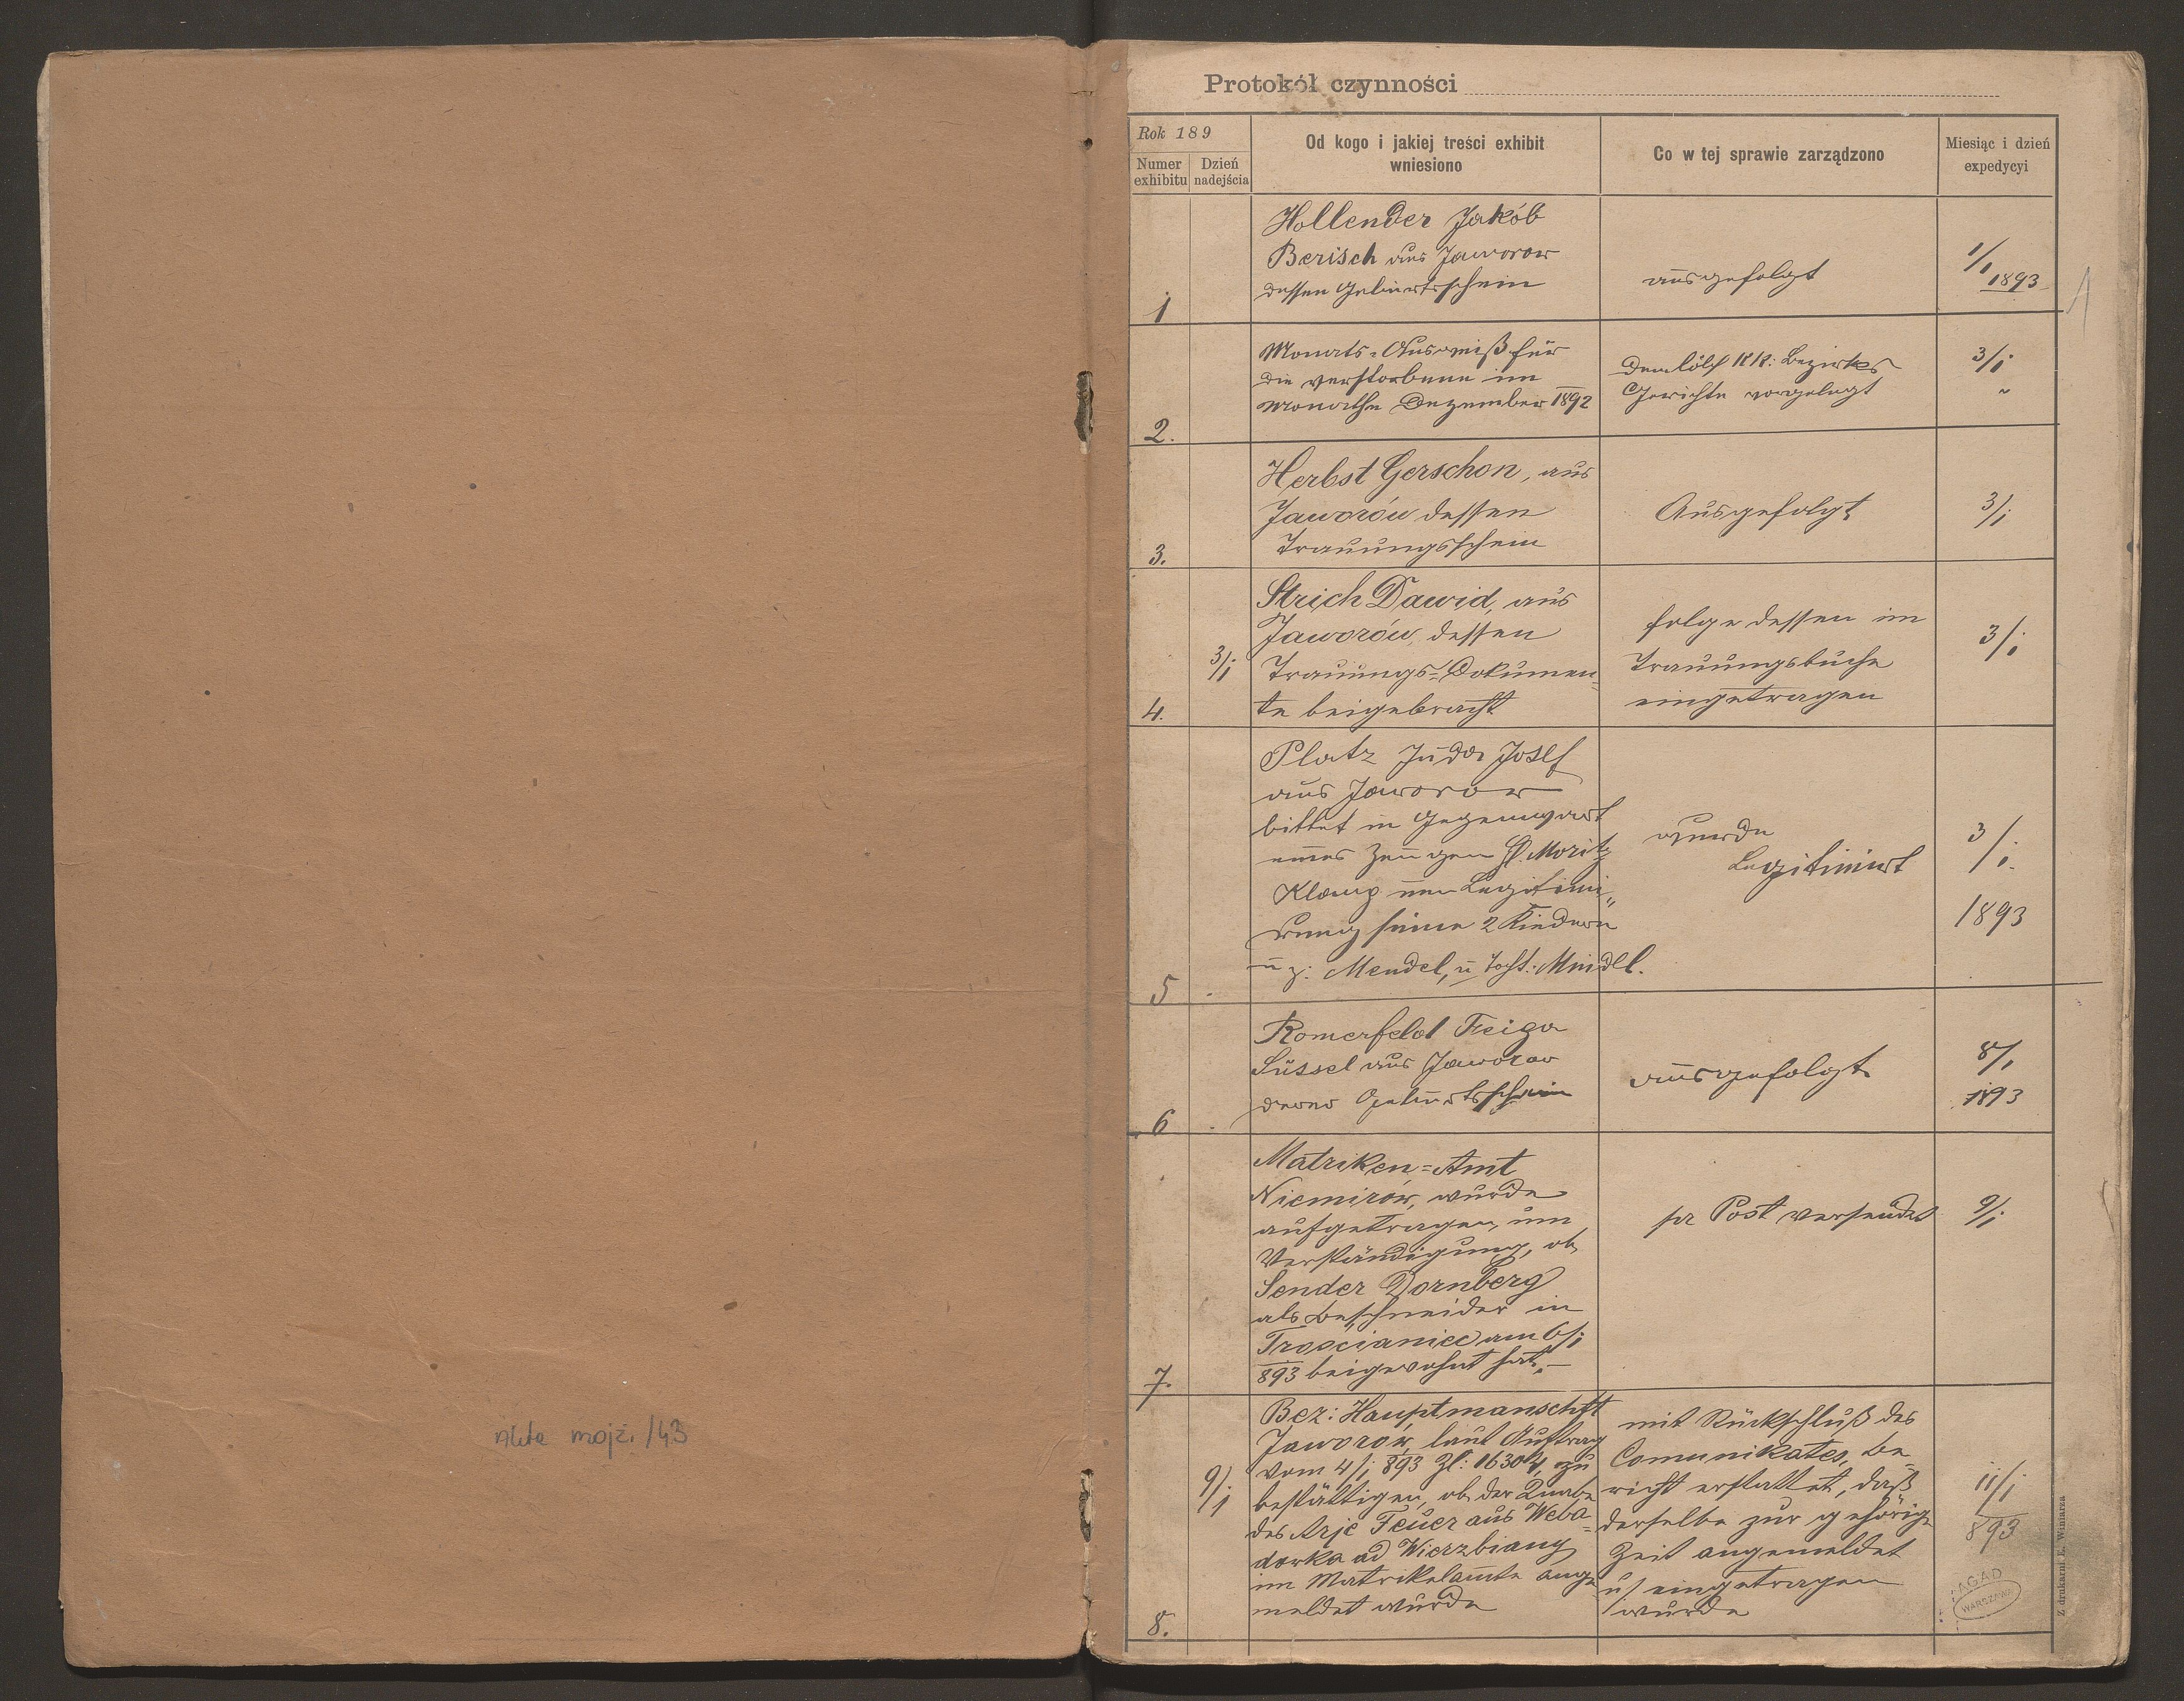 Akta mojż. /43
Protokół czynności
Rok 189
Numer exhibitu
Dzień nadejścia
Od kogo i jakiej treści exhibit
wniesiono
Co w tej sprawie zarządzono
Miesiąc i dzień
expedycyi
1
Hollender Jakób
Berisch aus Jaworow
dessen Geburtsschein
ausgefolgt
1/1 1893
1
2.
Monats-Ausweiß für
die verstorbene im
Monathe Dezember 1892
dem löbl K.K: Bezirks
Gerichte vorgelegt
3/1
"
3.
Herbst Gerschon, aus
Jaworów dessen
Trauungsschein
Ausgefolgt
3/1
4.
3/1
Strich Dawid, aus
Jaworów, dessen
Trauungs=Dokumen=
te beigebracht
folge dessen im
Trauungsbuche
eingetragen
3/1
5
Platz Juda Josef
aus Jaworow
bittet in Gegenwart
eines Zeugen H. Moritz
Klang um Legitimi"
rung seine 2 Kindern
u z: Mendel, u Toch: Mindel.
wurde
Legitimirt
3/1.
1893
6
Romerfeld Feiga
Süssel aus Jaworow
deren Geburtsschein
ausgefolgt
8/1
1893
7.
Matriken=Amt
Niemirów, wurde
aufgetragen, um
Verständigung, ob
Sender Dornberg
als Beschneider in
Trościaniec am 6/1
893 beigewohnt hat.—
pr Post versendet
9/1
8.
9/1
Bez: Hauptmanschft
Jaworow, laut Auftrag
vom 4/1 893 Zl: 16304, zu
bestättigen, ob der Knabe
des Arje Feuer aus Weba=
dowka ad Wierzbiany
im Matrikelamte ange
meldet wurde
mit Rückschluß des
Comunikates, be=
richt erstattet, daß
derselbe zur gehörig
Zeit angemeldet
u/ eingetragen
wurde
11/1
893
AGAD
WARSZAWA
Z drukarni E. Winiarza